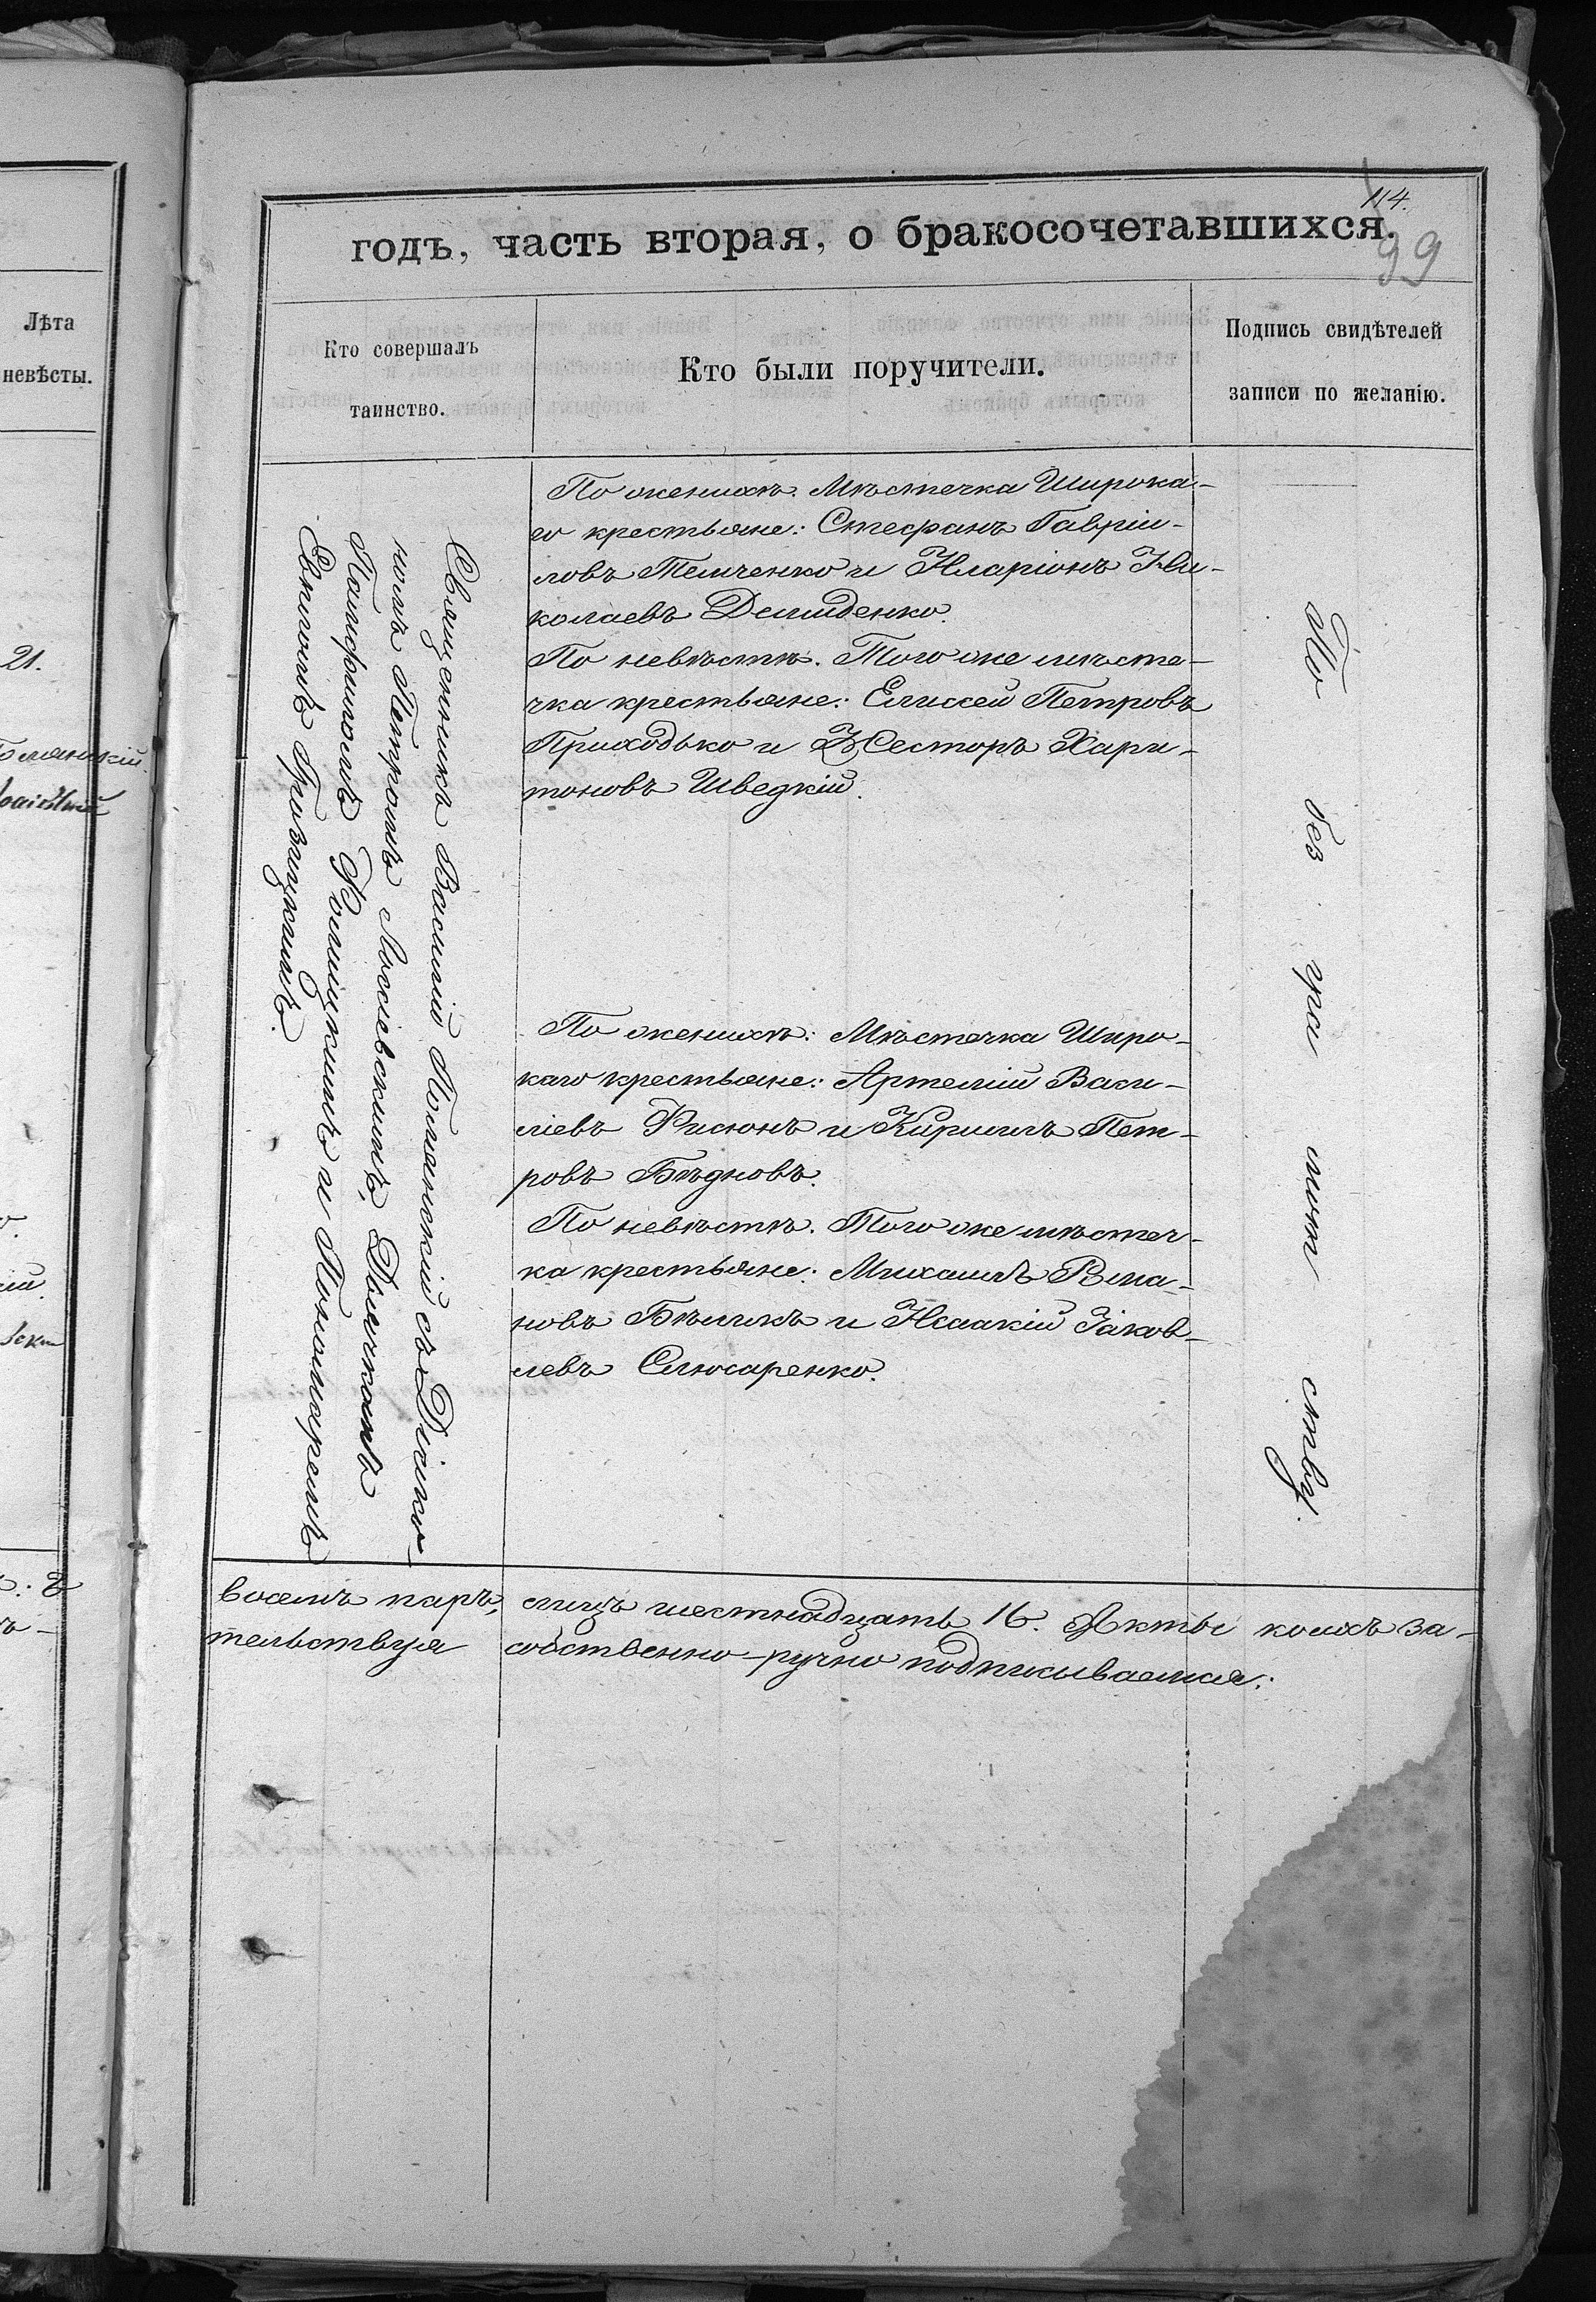 114.
годъ, часть вторая, о бракосочетавшихся.
99
Лѣта
невѣсты.
Кто совершалъ
таинство.
Кто были поручители.
Подпись свидѣтелей
записи по желанію.
21.
Священникъ Василій Полянскій съ Діако-
номъ Петромъ Лосіевскимъ, Дьячкомъ
и Пономаремъ
По женихѣ. Мѣстечка Широка-
го крестьяне: Стефанъ Гавріи-
ловъ Темченко и Иларіонъ Ни-
колаевъ Демиденко.
По невѣстѣ. Того же мѣсте-
чка крестьяне: Елиссей Петровъ
Приходько и Несторъ Хари-
тоновъ Шведкій.
По женихѣ: Мѣстечка Широ-
каго крестьяне: Артемій Васи-
ліевъ Фисюнъ и Кириллъ Пет-
ровъ Бѣдновъ.
По невѣстѣ. Того же мѣстеч-
ка крестьяне: Михаилъ Рома-
новъ Бѣликъ и Исаакій Іаков-
левъ Слюсаренко.
По без гра мот ству.
восемь паръ, лицъ шестнадцать 16. Акты коихъ за-
тельствуя собственно-ручно подписываемся: